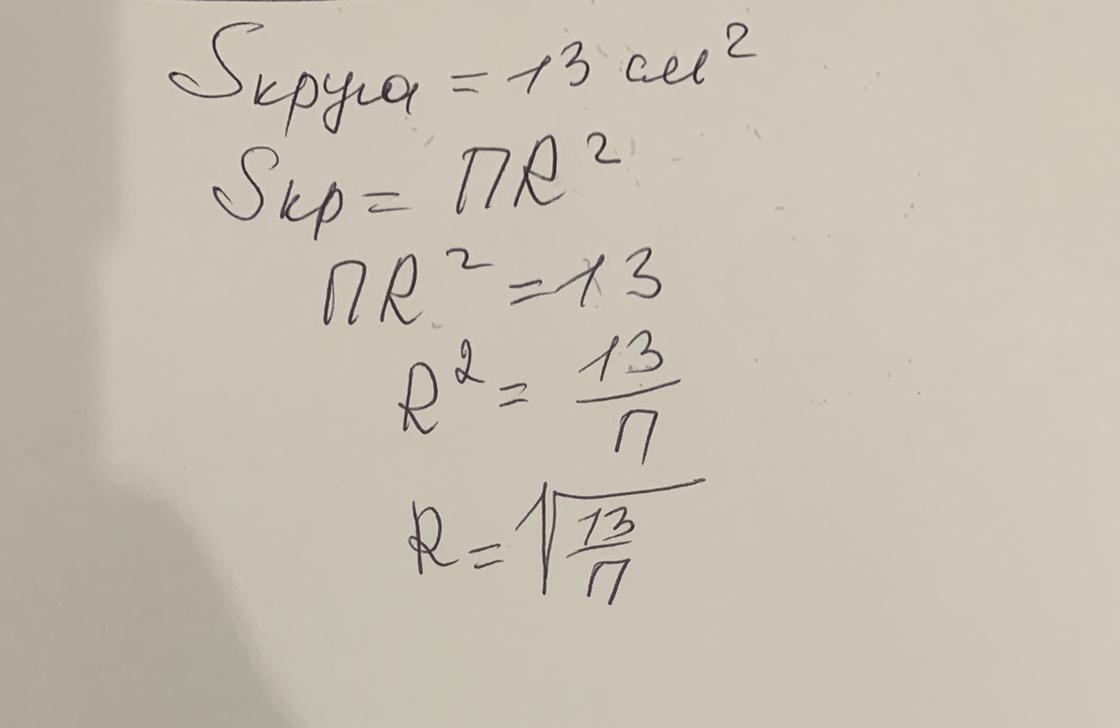 Sкруга = 13 см²
Sкр = ПR²
ПR² = 13
R² = 13/П
R = √(13/П)